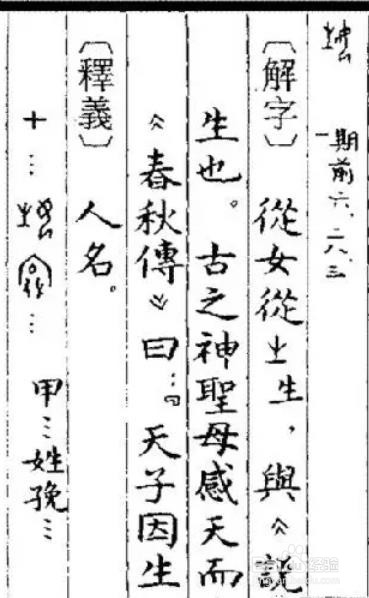 一期前六.二八.三
〔解字〕 從女從㞢生,與《説
生也。古之神聖母感天而
《春秋傳》曰:『天子因生
〔釋義〕 人名。
十…
甲…姓娩…
Bai 经验